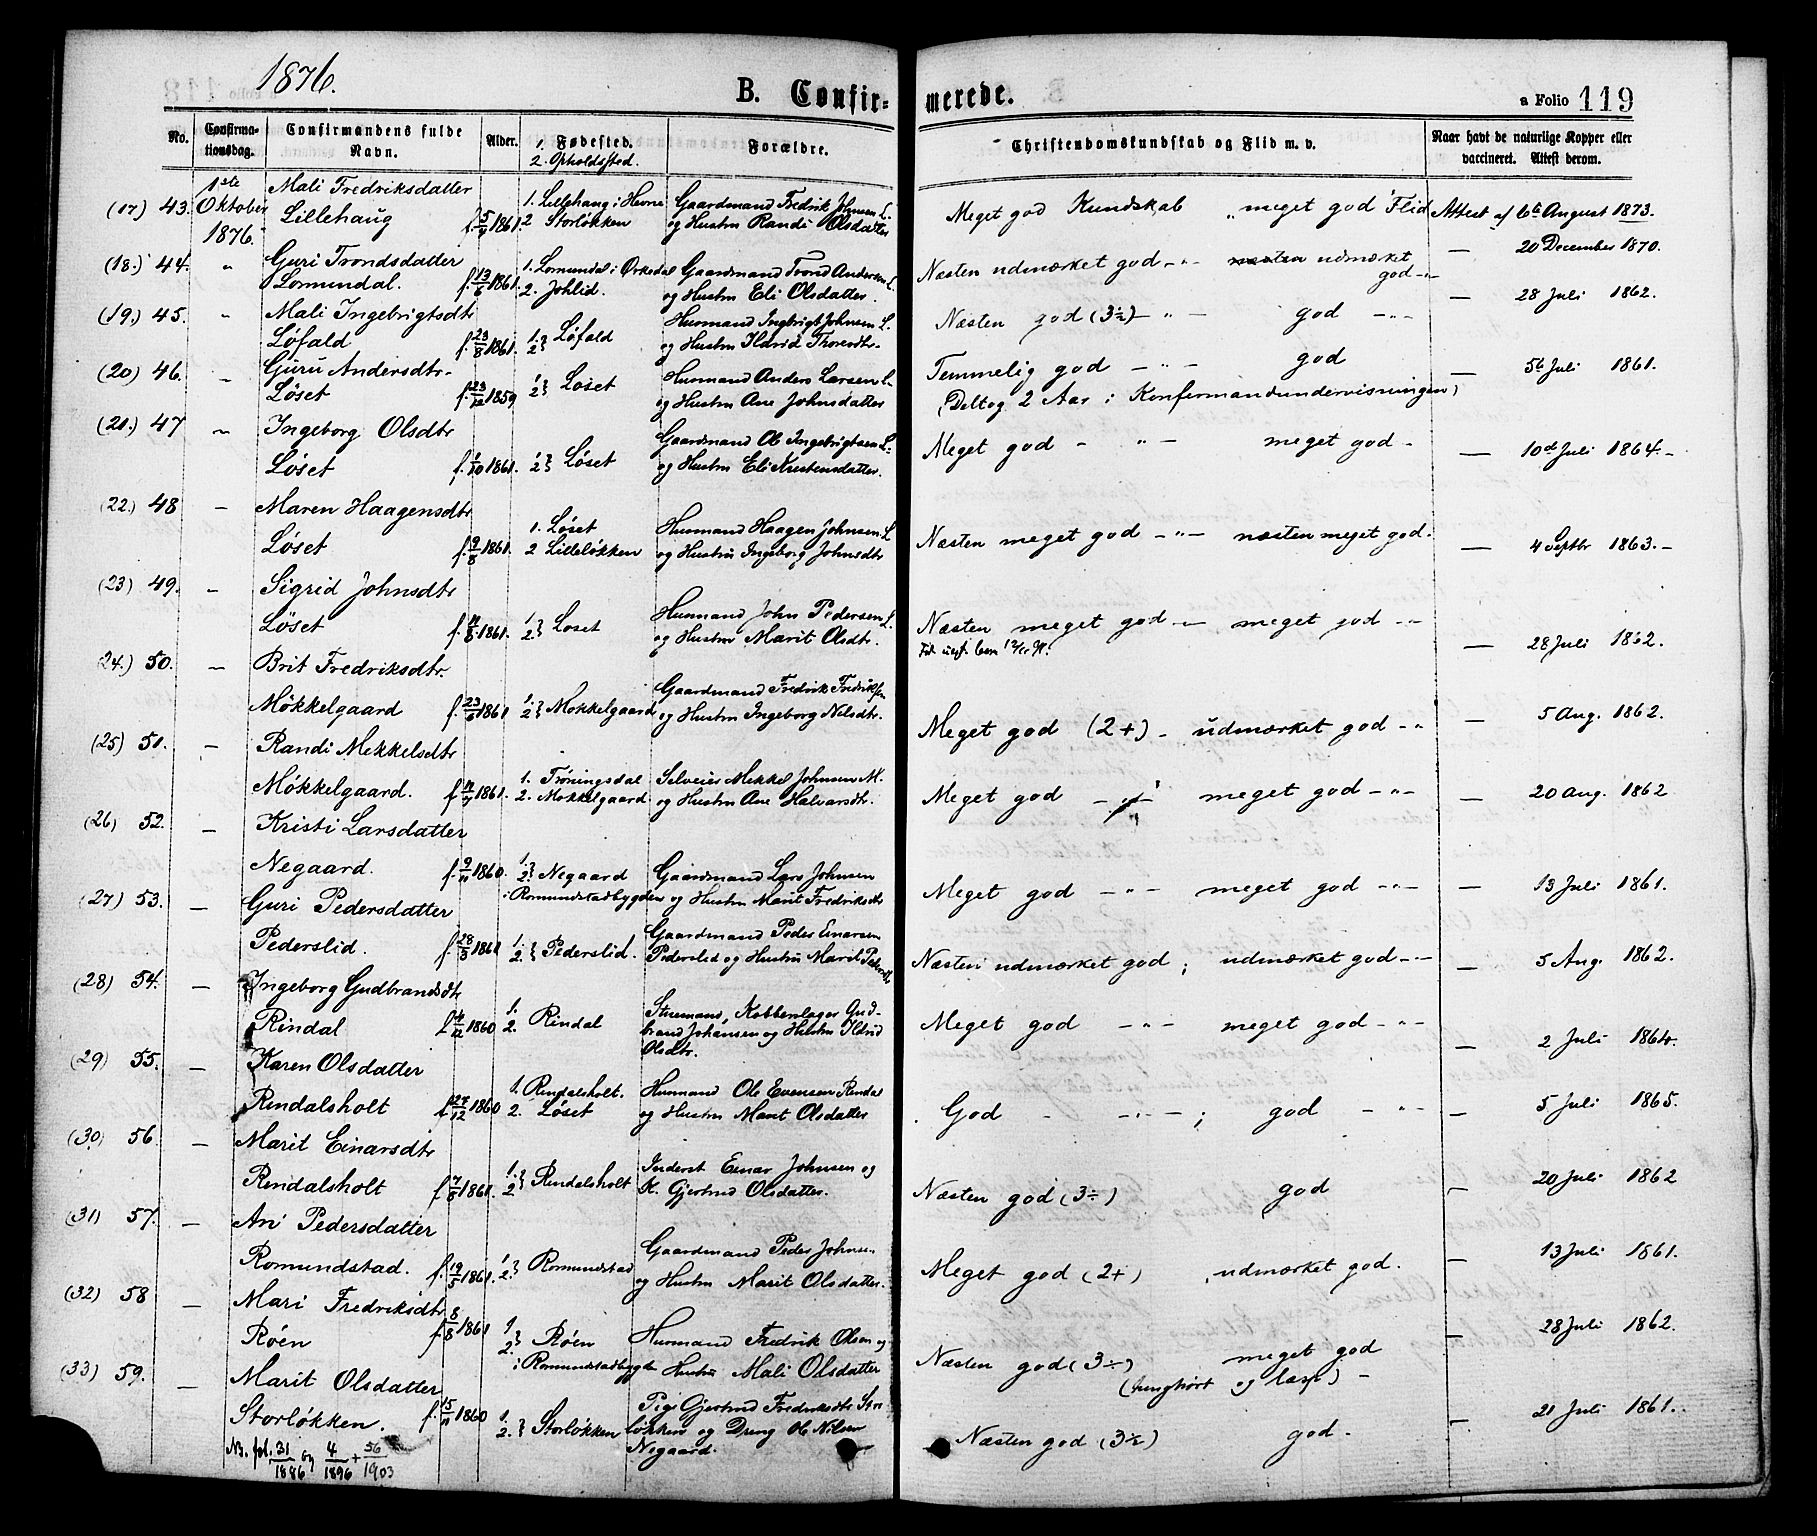 1876.
B. Confirmerede.
a Folio 119
No.
Confirmationsdag.
Confirmandens fulde Navn.
Alder.
1. Fødested.
2. Opholdssted.
Forældre.
Christendomskundskab og Flid m. v.
Naar havt de naturlige Kopper eller vaccineret. Attest derom.
(17) 43. 1ste Oktober 1876. Mali Fredriksdatter
Lillehaug f. 5/9 1861.
1. Lillehaug i Hevne
2 Storløkken
Gaardmand Fredrik Johnsen L.
og Hustru Randi Olsdatter
Meget god Kundskab " meget god Flid
Attest af 6te August 1873.
(18.) 44. " Guri Trondsdatter
Lomundal. f. 13/6 1861.
1. Lomundal i Orkedal
2. Johlid.
Gaardmand Trond Andersen L.
og Hustru Eli Olsdatter.
Næsten udmærket god - " - næsten udmærket
god - " -
— 20 December 1870.
(19.) 45. " Mali Ingebrigtsdtr
Löfald f. 23/8 1861.
1. 2 } Löfald
Husmand Ingbrigt Johnsen L.
og Hustru Ildrid Thoresdtr.
Næsten god (3½) - " - god - " -
— 28 Juli 1862.
(20) 46. " Guru Andersdtr.
Löset f. 23/12 1859
1. 2 } Löset
Husmand Anders Larsen L.
og Hustru Ane Johnsdatter
Temmelig god - " - god
(Deltog 2 Aar i Konfirmandundervisningen)
— 5te Juli 1861.
(21.) 47 " Ingeborg Olsdtr
Löset f. 1/10 1861.
1. 2 } Löset
Gaardmand Ole Ingebrigtsen L.
og Hustru Eli Kristensdatter.
Meget god - " - meget god -
— 10de Juli 1864.-
(22.) 48 - Maren Haagensdtr
Löset f. 9/8 1861.
1. Löset
2 Lilleløkken
Husmand Haagen Johnsen L
og Hustru Ingeborg Johnsdtr
Næsten meget god - " - næsten meget god.
— 4 Septbr 1863.-
(23) 49. - Sigrid Johnsdtr
Löset 1861.
1. 2. } Löset
Husmand John Pedersen L.
og Hustru Marit Olsdtr.
Næsten meget god - " - meget god - "
— 28 Juli 1862.
(24.) 50. " Brit Fredriksdtr.
Mökkelgaard f. 23/6 1861
1. 2 } Mökkelgaard
Gaardmand Fredrik Fredriksen
og Hustru Ingeborg Nilsdtr.
Meget god (2+) - udmærket god - "
— 5 Aug. 1862.
(25) 51. - Randi Mekkelsdtr
Mökkelgaard. 1861.
1. Tröningsdal
2. Mökkelgaard
Selveier Mekkel Johnsen M.
og Hustru Ane Halvorsdtr.
Meget god - " - meget god - " -
— 20 Aug. 1862
(26) 52. - Kristi Larsdatter
Negaard. f. 9/11 1860.
1. 2. } Negaard
i Romundstadbygden
Gaardmand Lars Johnsen
og Hustru Marit Fredriksdtr
Meget god - " - meget god - " -
— 13 Juli 1861.
(27) 53. - Guri Pedersdatter
Pederslid. f. 28/3 1861
1. 2. } Pederslid.
Gaardmand Peder Einarsen
Pederslid og Hustru Marit Pedersdtr
Næsten udmærket god ; udmærket god - " -
— 5 Aug. 1862.
(28) 54. - Ingeborg Gudbrandsdtr
Rindal 1860
1. 2. Rindal
Stuemand, Kobberslager Gudbrand Johansen og Hustru Ildrid
Olsdtr.
Meget god - " - meget god - " -
— 2 Juli 1864.
(29) 55. - Karen Olsdatter
Rindalsholt f. 27/12 1860
1. Rindalsholt.
2. Löset
Husmand Ole Evensen Rindal
og Hustru Marit Olsdatter
God - " - ; god - " -
— 5 Juli 1865.
(30) 56. - Marit Einarsdtr
Rindalsholt f. 7/8 1861.
1. 2 } Rindalsholt
Inderst Einar Johnsen og
H. Gjertrud Olsdatter.
Næsten god (3÷) god
— 20 Juli 1862
(31) 57. - Ari Pedersdatter
Romundstad. f. 19/5 1861.
1. 2. } Romundstad
Gaardmand Peder Johnsen
og Hustru Marit Olsdatter.
Meget god (2+) , udmærket god.
— 13 Juli 1861.
(32) 58 - Mari Fredriksdtr.
Röen f. 8/8 1861
1 2. } Röen
i Romundstadbygden
Husmand Fredrik Olsen og
Hustru Mali Olsdatter
Næsten god (3÷) meget god
(tunghört og læsp) -
— 28 Juli 1862.
(33) 59. - Marit Olsdatter
Storløkken. f. 15/11 1860
1. 2. } Storløkken
Pige Gjertrud Fredriksdtr Storløkken og Dreng Ole Nilsen
Negaard.
Næsten god (3½) god -
— 21 Juli 1861.
NB. fol. 31/1886 og 4/1896 + 56/1903